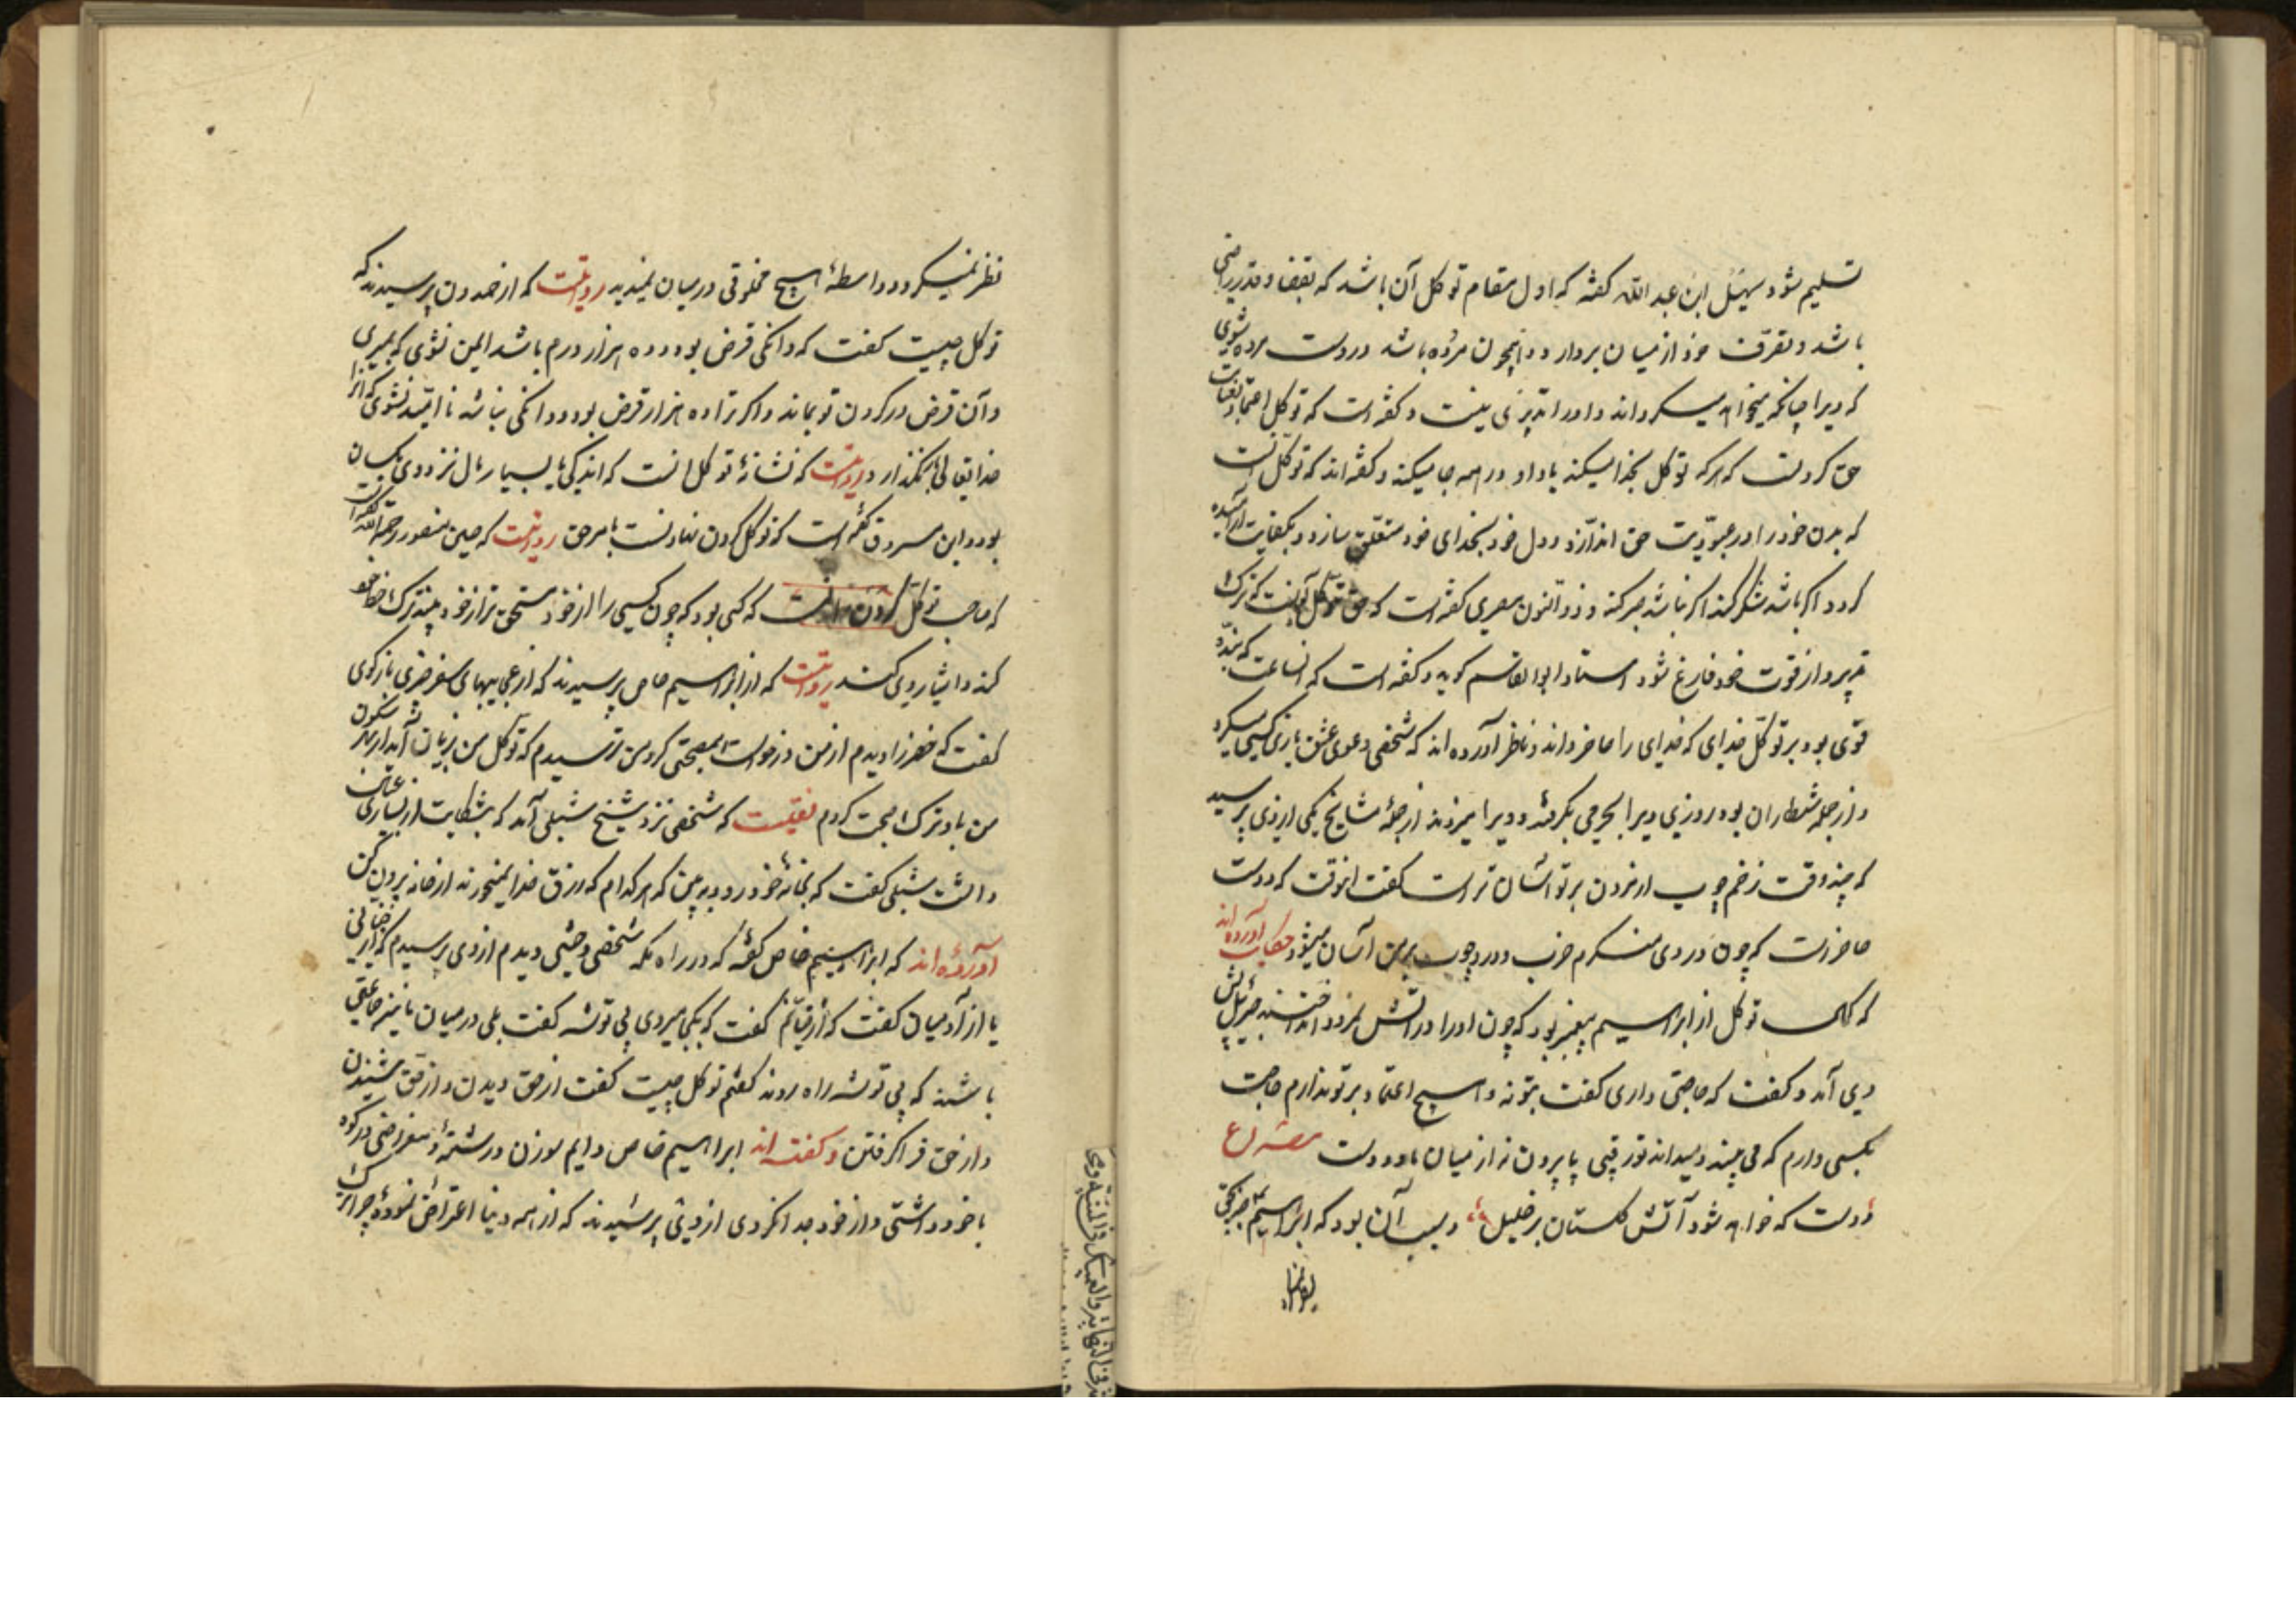 تسلیم شود سهل ابن عبد الله گفته که اول مقام توکل آن باشد که بقضا و قدر راضی
باشد و تصرف خود از میان بردارد و همچون مرده باشد در دست مرده شوی
که ویرا چنانکه میخواهد میگرداند و او را تدبیری نیست و گفته است که توکل اعتماد
حق کردنست که هر که توکل بخدا میکند باد او در همه جا میکند و گفته اند که توکل آنست
که بدن خود را در عبودیت حق اندازد و دل خود بخدای خود متعلق سازد و بکفایت آرامیده
گردد اگر باشد شکر کند اگر نباشد صبر کند و ذو النون مصری گفته است که حق توکل آنست که ترک
تدبیر و از قوت خود فارغ شود استاد ابو القاسم گوید و گفته است که انساعت که بنده
قوی بود بر توکل خدای که خدای را حاضر داند و ناظر آورده اند که شخصی دعوی عشق بازی کسی میکرد
و از جمله شطاران بود روزی ویرا بجرمی بگرفتند و ویرا میزدند از جمله مشایخ یکی از وی پرسید
که چند وقت زخم چوب از مردن بر تو آسان تر است گفت انوقت که دوست
حاضر است که چون در وی مینگرم ضرب و درد چوب بر من آسان میشود حکایت آورده اند
که کمال توکل از ابراهیم پیغمبر بود که چون او را در آتش نمرود انداختند جبرئیل پیش
وی آمد و گفت که حاجتی داری گفت بتو نه و هیچ اعتماد بر تو ندارم حاجت
بکسی دارم که می بیند و میداند تو رقیبی پا بیرون نه از میان ما و دوست مصراع
دوست که خواهد شود آتش گلستان بر خلیل و سبب آن بود که ابراهیم جز بحق
نظر نمیکرد و واسطهٔ هیچ مخلوقی در میان نمیدید روایتست که از حمدون پرسیدند که
توکل چیست گفت که دانکی قرض بود و ده هزار درم باشد ایمن نشوی که بمیری
و آن قرض در گردن تو بماند و اگر ترا ده هزار قرض بود و دانکی نباشد نا امید نشوی که آنرا
خدایتعالی بگذارد و روایتست که نشانهٔ توکل انست که اندکی یا بسیار مال نزد وی یکسان
بود و ابن مسروق گفته است که توکل گردن نهادنست بامر حق روایتست که حسین منصور رحمة الله گفته است
که صاحب توکل کردن کسی بود که چون کسی را از خود مستحق تر از خود بیند ترک
کند و ایثار وی کند روایتست که از ابراهیم خاص پرسیدند که از عجایبهای سفر خبری باز گوی
گفت که خضر را دیدم از من درخواست مصحبتی کرد من ترسیدم که توکل من بزیان آید
من با او ترک صحبت کردم نقلیست که شخصی نزد شیخ شبلی آمد که بشکایت از بسیاری عیال
داشت شبلی گفت که بخانهٔ خود رو و به بین که هر کدام که رزق خدا نمیخورند از خانه بیرون کن
آورده اند که ابراهیم خاص گفته که در راه مکه شخصی وحشی دیدم از وی پرسیدم که از جنیانی
یا از آدمیان گفت که از پریانم گفت که بکجا میروی بی توشه گفت بلی در میان ما نیز جماعتی
باشند که بی توشه راه روند گفتم توکل چیست گفت از حق دیدن و از حق شنیدن
و از حق فرا گرفتن و گفته اند ابراهیم خاص دایم سوزن و رشته و مقراض در کوزه
با خود داشتی و از خود جدا نکردی از ویش پرسیدند که از همه دنیا اعتراض نموده چرا این